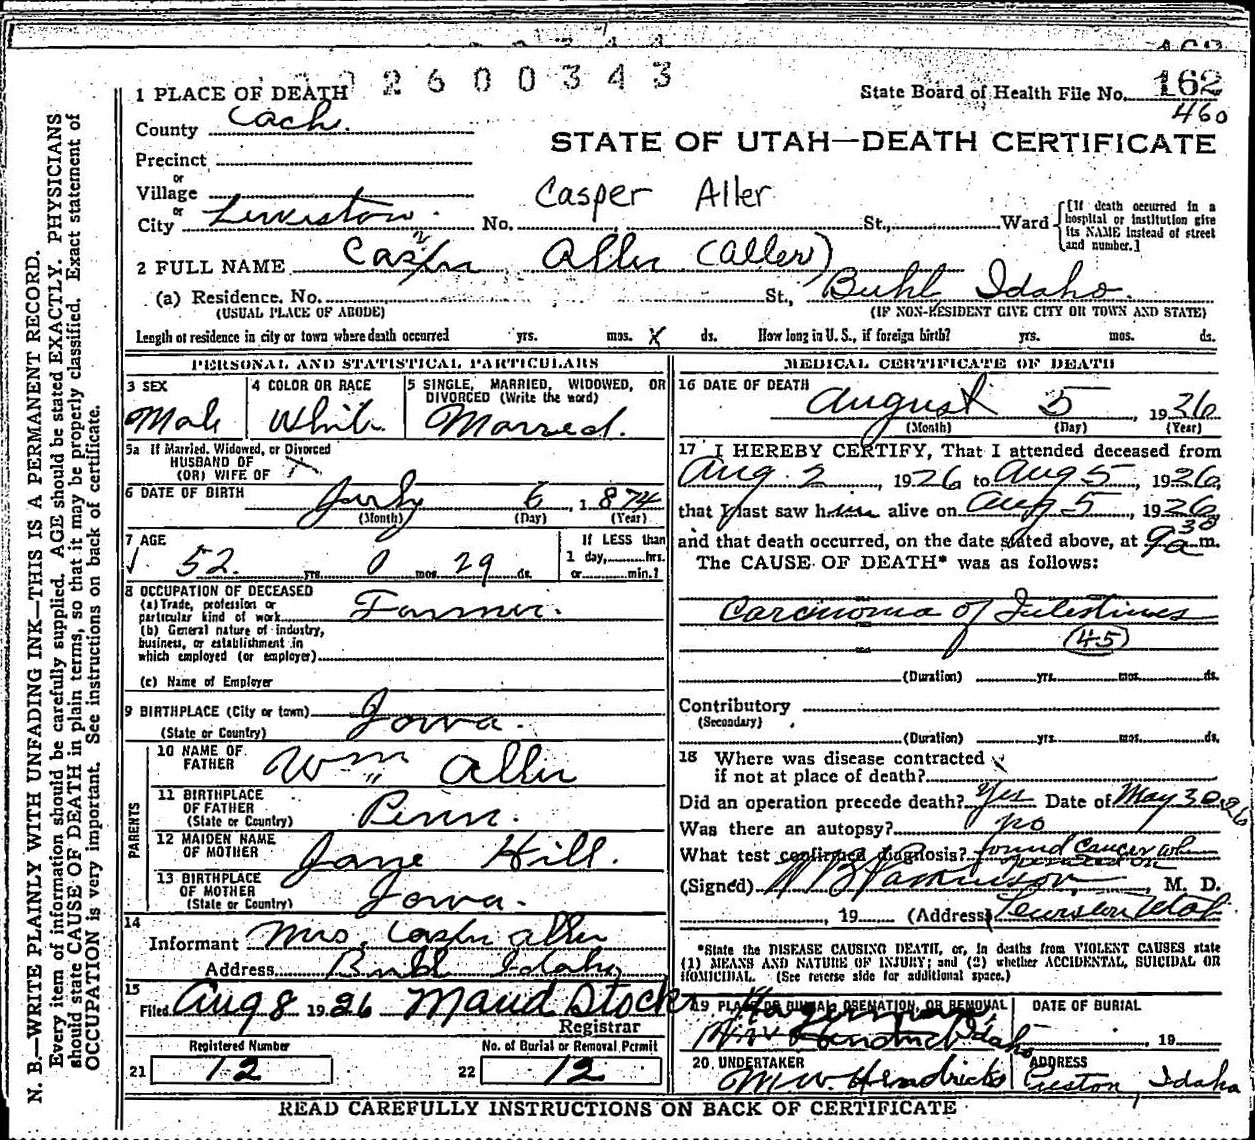 N. B.—WRITE PLAINLY WITH UNFADING INK—THIS IS A PERMANENT RECORD.
Every item of information should be carefully supplied. AGE should be stated EXACTLY. PHYSICIANS
should state CAUSE OF DEATH in plain terms, so that it may be properly classified. Exact statement of
OCCUPATION is very important. See instructions on back of certificate.
2600343
1 PLACE OF DEATH
State Board of Health File No. 162
460
County Cach.
STATE OF UTAH—DEATH CERTIFICATE
Precinct
or
Village
Casper Aller
or
City Lewiston. No. St., Ward
[If death occurred in a
hospital or institution give
its NAME instead of street
and number.]
2 FULL NAME Casper Aller (Aller)
(a) Residence. No. St., Buhl Idaho.
(USUAL PLACE OF ABODE) (IF NON-RESIDENT GIVE CITY OR TOWN AND STATE)
Length of residence in city or town where death occurred yrs. mos. X ds. How long in U. S., if foreign birth? yrs. mos. ds.
PERSONAL AND STATISTICAL PARTICULARS
3 SEX
Male
4 COLOR OR RACE
White
5 SINGLE, MARRIED, WIDOWED, OR
DIVORCED (Write the word)
Married.
5a If Married, Widowed, or Divorced
HUSBAND OF
(OR) WIFE OF
6 DATE OF BIRTH July 6, 1874
(Month) (Day) (Year)
7 AGE
52 yrs. 0 mos. 29 ds.
If LESS than
1 day, hrs.
or min.?
8 OCCUPATION OF DECEASED
(a) Trade, profession or
particular kind of work Farmer.
(b) General nature of industry,
business, or establishment in
which employed (or employer)
(c) Name of Employer
9 BIRTHPLACE (City or town) Iowa.
(State or Country)
PARENTS
10 NAME OF
FATHER Wm Aller
11 BIRTHPLACE
OF FATHER
(State or Country) Penn.
12 MAIDEN NAME
OF MOTHER Jane Hill.
13 BIRTHPLACE
OF MOTHER
(State or Country) Iowa.
14
Informant Mrs. Casper Aller
Address Buhl Idaho
15
Filed Aug 8 1926 Maud Stocks
Registrar
Registered Number
21 12
No. of Burial or Removal Permit
22 12
MEDICAL CERTIFICATE OF DEATH
16 DATE OF DEATH
August 5, 1926
(Month) (Day) (Year)
17 I HEREBY CERTIFY, That I attended deceased from
Aug. 2, 1926 to Aug 5, 1926,
that I last saw him alive on Aug 5, 1926
and that death occurred, on the date stated above, at 9 30 a m.
The CAUSE OF DEATH* was as follows:
Carcinoma of Intestines
(45)
(Duration) yrs. mos. ds.
Contributory
(Secondary)
(Duration) yrs. mos. ds.
18 Where was disease contracted
if not at place of death?
Did an operation precede death? Yes Date of May 30 26
Was there an autopsy? no
What test confirmed diagnosis? found Cancer when
operated on
(Signed) Parkinson, M. D.
, 19 (Address) Lewiston Utah
*State the DISEASE CAUSING DEATH, or, in deaths from VIOLENT CAUSES state
(1) MEANS AND NATURE OF INJURY; and (2) whether ACCIDENTAL, SUICIDAL OR
HOMICIDAL. (See reverse side for additional space.)
19 PLACE OF BURIAL, CREMATION, OR REMOVAL
Hagerman
Idaho
DATE OF BURIAL
, 19
20 UNDERTAKER
M. W. Hendricks
ADDRESS
Preston, Idaho
READ CAREFULLY INSTRUCTIONS ON BACK OF CERTIFICATE